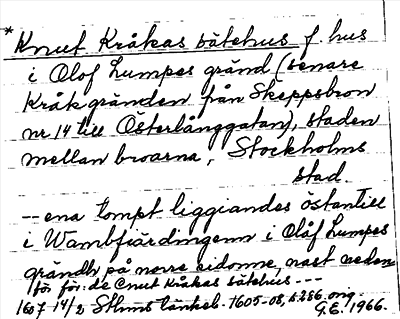 * Knut Kråkas båtehus f. hus
i Olof Lumpes gränd (senare
Kråkgränden från Skeppsbron
nr 14 till Österlånggatan), staden
mellan broarna, Stockholms
stad.
-- ena tompt liggiandes östantill
i Wambfiärdingenn i Olåf Lumpes
grändh på norre sidonne, näst neden
för för: de Cnut Kråkas båtehus ---
1607 14/2 Sthms tänkeb. 1605-08, s. 286. orig.
G.E. 1966.